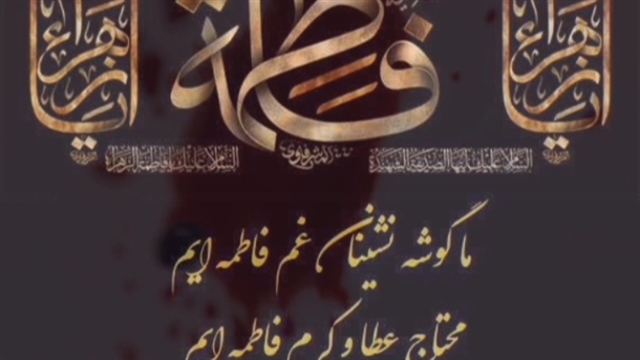 یا زهرا فاطمة یا زهرا
السلام علیک ایتها الصدیقة الشهیدة السلام علیک یا فاطمة الزهراء
ما گوشه نشینان غم فاطمه ایم
محتاج عطا و کرم فاطمه ایم